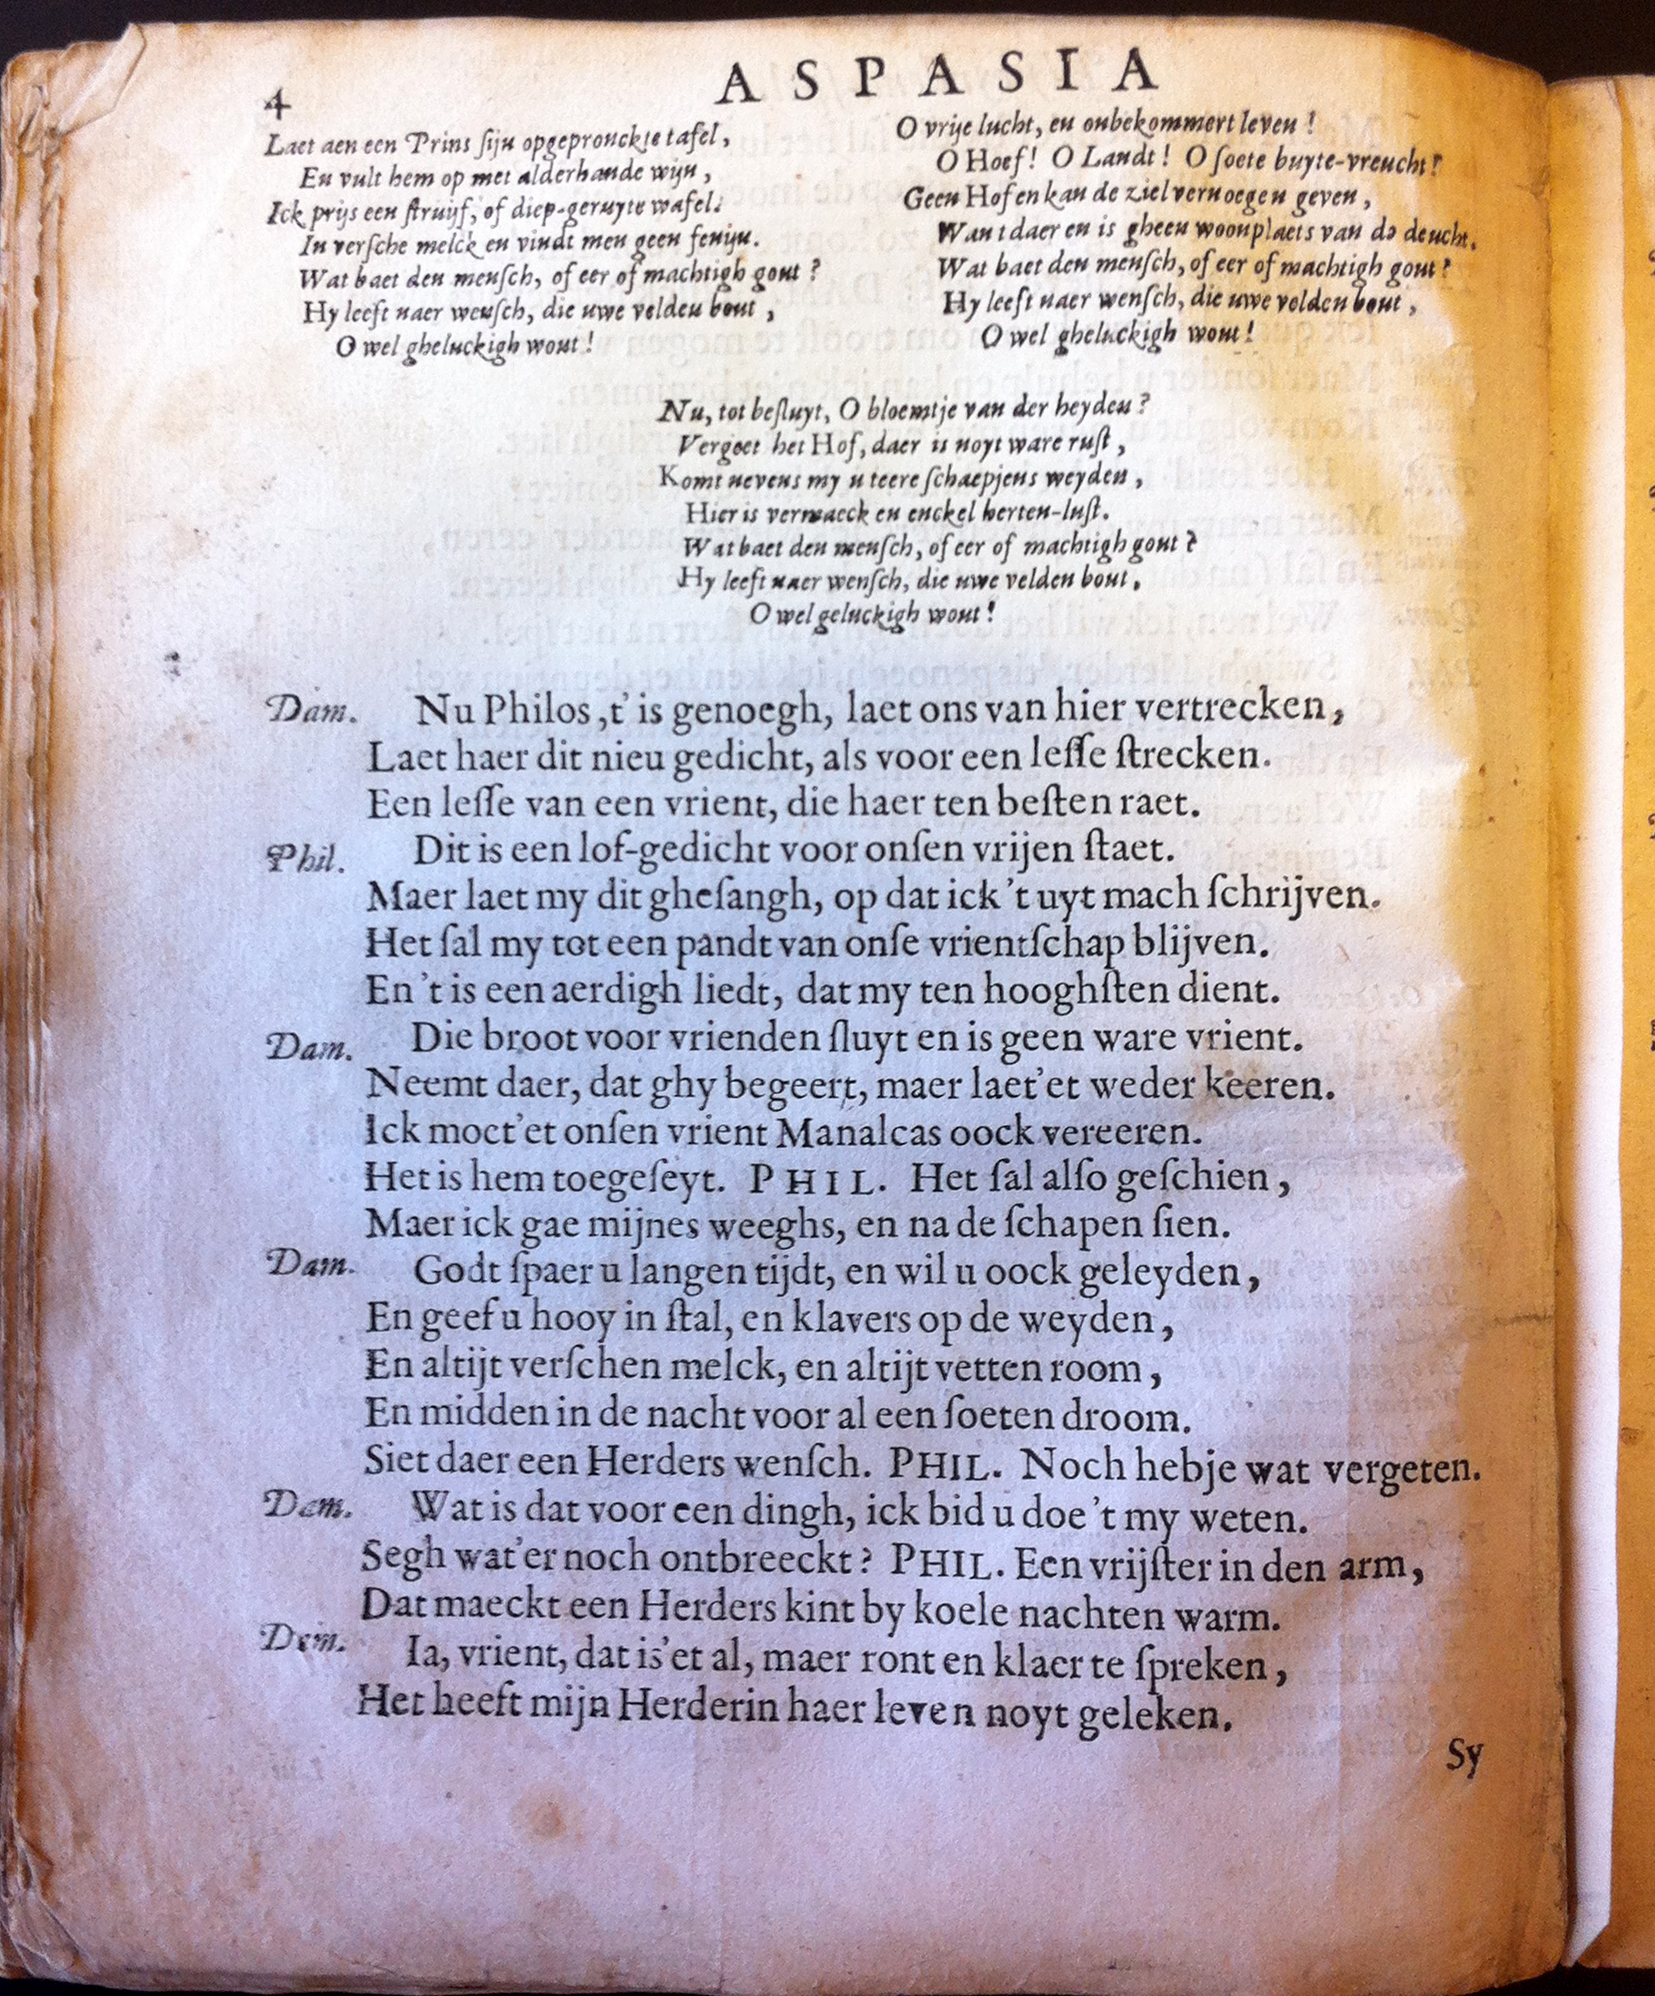 4
ASPASIA
Laet aen een Prins ſijn opgepronckte tafel,
En vult hem op met alderhande wijn,
Ick prijs een ſtruijf, of diep-geruyte wafel.
In verſche melck en vindt men geen fenijn.
Wat baet den menſch, of eer of machtigh gout?
Hy leeft naer wenſch, die uwe velden bout,
O wel gheluckigh wout!
O vrije lucht, en onbekommert leven!
O Hoef! O Landt! O ſoete buyte-vreucht!
Geen Hof en kan de ziel vernoegen geven,
Want daer en is gheen woonplaets van de deucht.
Wat baet den menſch, of eer of machtigh gout?
Hy leeft naer wenſch, die uwe velden bout,
O wel gheluckigh wout!
Nu, tot beſluyt, O bloemtje van der heyden?
Vergeet het Hof, daer is noyt ware ruſt,
Komt nevens my u teere ſchaepjens weyden,
Hier is vermaeck en enckel herten-luſt.
Wat baet den menſch, of eer of machtigh gout?
Hy leeft naer wenſch, die uwe velden bout,
O wel geluckigh wout!
Dam. Nu Philos, t' is genoegh, laet ons van hier vertrecken,
Laet haer dit nieu gedicht, als voor een leſſe ſtrecken.
Een leſſe van een vrient, die haer ten beſten raet.
Phil. Dit is een lof-gedicht voor onſen vrijen ſtaet.
Maer laet my dit gheſangh, op dat ick 't uyt mach ſchrijven.
Het ſal my tot een pandt van onſe vrientſchap blijven.
En 't is een aerdigh liedt, dat my ten hooghſten dient.
Dam. Die broot voor vrienden ſluyt en is geen ware vrient.
Neemt daer, dat ghy begeert, maer laet'et weder keeren.
Ick moet'et onſen vrient Manalcas oock vereeren.
Het is hem toegeſeyt. PHIL. Het ſal alſo geſchien,
Maer ick gae mijnes weeghs, en na de ſchapen ſien.
Dam. Godt ſpaer u langen tijdt, en wil u oock geleyden,
En geef u hooy in ſtal, en klavers op de weyden,
En altijt verſchen melck, en altijt vetten room,
En midden in de nacht voor al een ſoeten droom.
Siet daer een Herders wenſch. PHIL. Noch hebje wat vergeten.
Dam. Wat is dat voor een dingh, ick bid u doe 't my weten.
Segh wat'er noch ontbreeckt? PHIL. Een vrijſter in den arm,
Dat maeckt een Herders kint by koele nachten warm.
Dam. Ia, vrient, dat is'et al, maer ront en klaer te ſpreken,
Het heeft mijn Herderin haer leven noyt geleken.
Sy